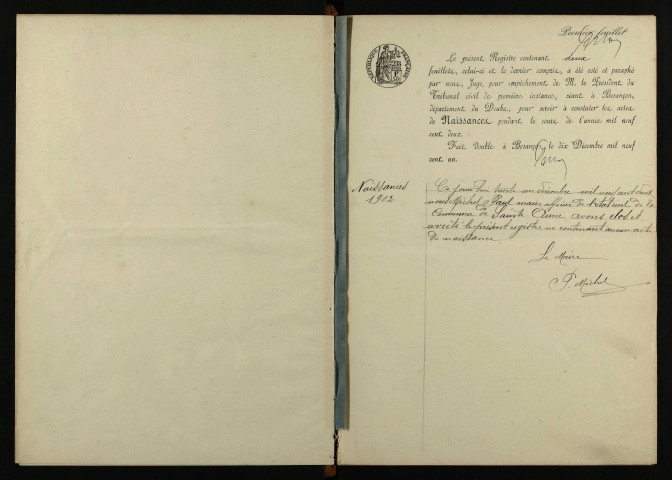 Premier feuillet
RÉPUBLIQUE FRANÇAISE
Le présent Registre contenant deux
feuillets, celui-ci et le dernier compris, a été coté et paraphé
par nous, Juge, pour empêchement de M. le Président du
Tribunal civil de première instance, séant à Besançon,
département du Doubs, pour servir à constater les actes
de Naissances pendant le cours de l'année mil neuf
cent deux.
Fait double à Besançon, le dix Décembre mil neuf
cent un.
Naissances
1902
Ce jourd'hui trente un décembre mil neuf cent deux
nous Michel Paul maire officier de l'état civil de la
Commune de Sainte Anne avons clos et
arrêté le présent registre ne contenant aucun acte
de naissance.
Le Maire
P. Michel